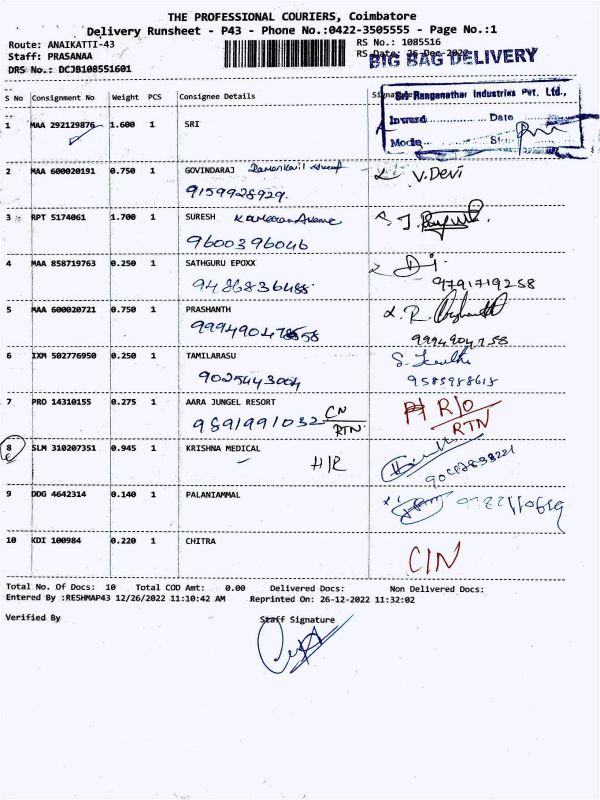 THE PROFESSIONAL COURIERS, Coimbatore
Delivery Runsheet - P43 - Phone No.:0422-3505555 - Page No.:1
Route: ANAIKATTI-43
RS No.: 1085516
Staff: PRASANAA
RS Date: 26-Dec-2022
BIG BAG DELIVERY
DRS No.: DCJB108551601
S No Consignment No Weight PCS Consignee Details Signature
Sri Ranganathar Industries Pvt. Ltd.,
Inward Date
Mode
1 MAA 292129876 1.600 1 SRI
2 MAA 600020191 0.750 1 GOVINDARAJ
V. Devi
9159928929
3 RPT 5174061 1.700 1 SURESH
9600396046
4 MAA 858719763 0.250 1 SATHGURU EPOXX
9486836488 9791719258
5 MAA 600020721 0.750 1 PRASHANTH
9994904758
6 IXM 502776950 0.250 1 TAMILARASU
9025443004 9585988618
7 PRO 14310155 0.275 1 AARA JUNGEL RESORT
9891991032 CN RTN R/O RTN
8 SLM 310207351 0.945 1 KRISHNA MEDICAL
H/R
9 DDG 4642314 0.140 1 PALANIAMMAL
10 KDI 100984 0.220 1 CHITRA
C/N
Total No. Of Docs: 10 Total COD Amt: 0.00 Delivered Docs: Non Delivered Docs:
Entered By :RESHMAP43 12/26/2022 11:10:42 AM Reprinted On: 26-12-2022 11:32:02
Verified By Staff Signature